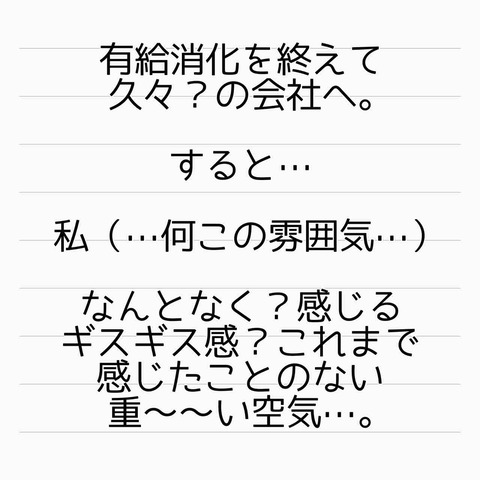 有給消化を終えて
久々？の会社へ。
すると…
私（…何この雰囲気…）
なんとなく？感じる
ギスギス感？これまで
感じたことのない
重〜〜い空気…。